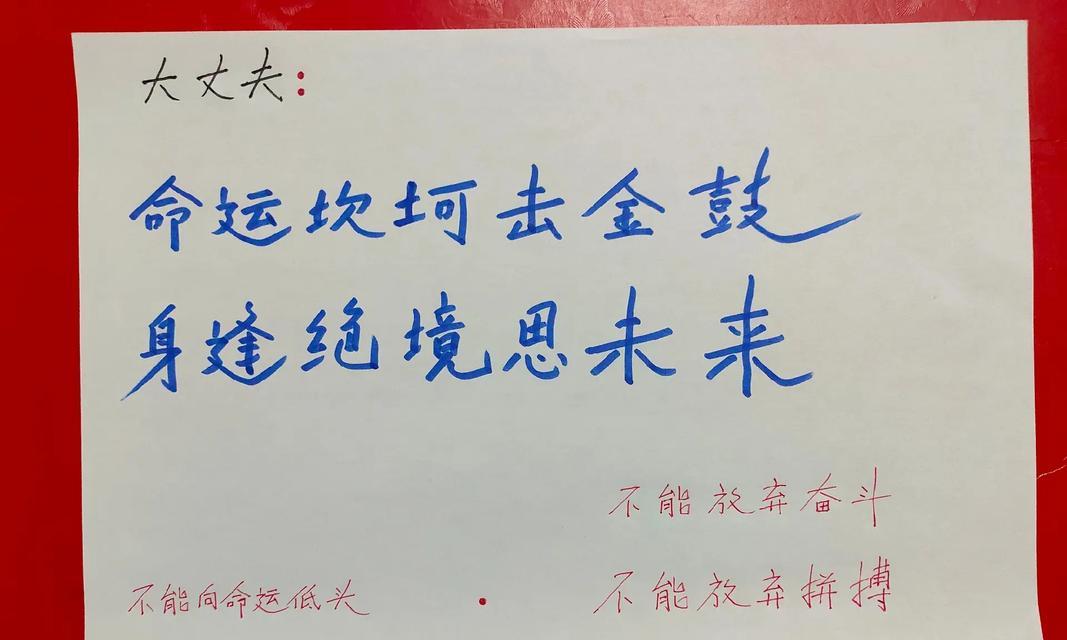 大丈夫:
命运坎坷击金鼓
身逢绝境思未来
不能放弃奋斗
不能向命运低头 · 不能放弃拼搏